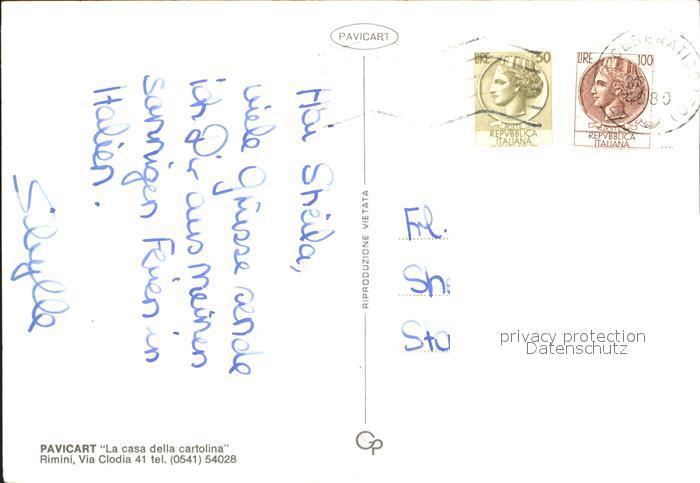 PAVICART
LIRE 50
REPVBBLICA
ITALIANA
LIRE 100
REPVBBLICA
ITALIANA
CESENATICO
Hai Sheila,
viele Grüsse sende
ich Dir aus meinen
sonnigen Ferien in
Italien.
Sibylle
RIPRODUZIONE VIETATA
Frl.
She
Sta
privacy protection
Datenschutz
GP
PAVICART "La casa della cartolina"
Rimini, Via Clodia 41 tel. (0541) 54028